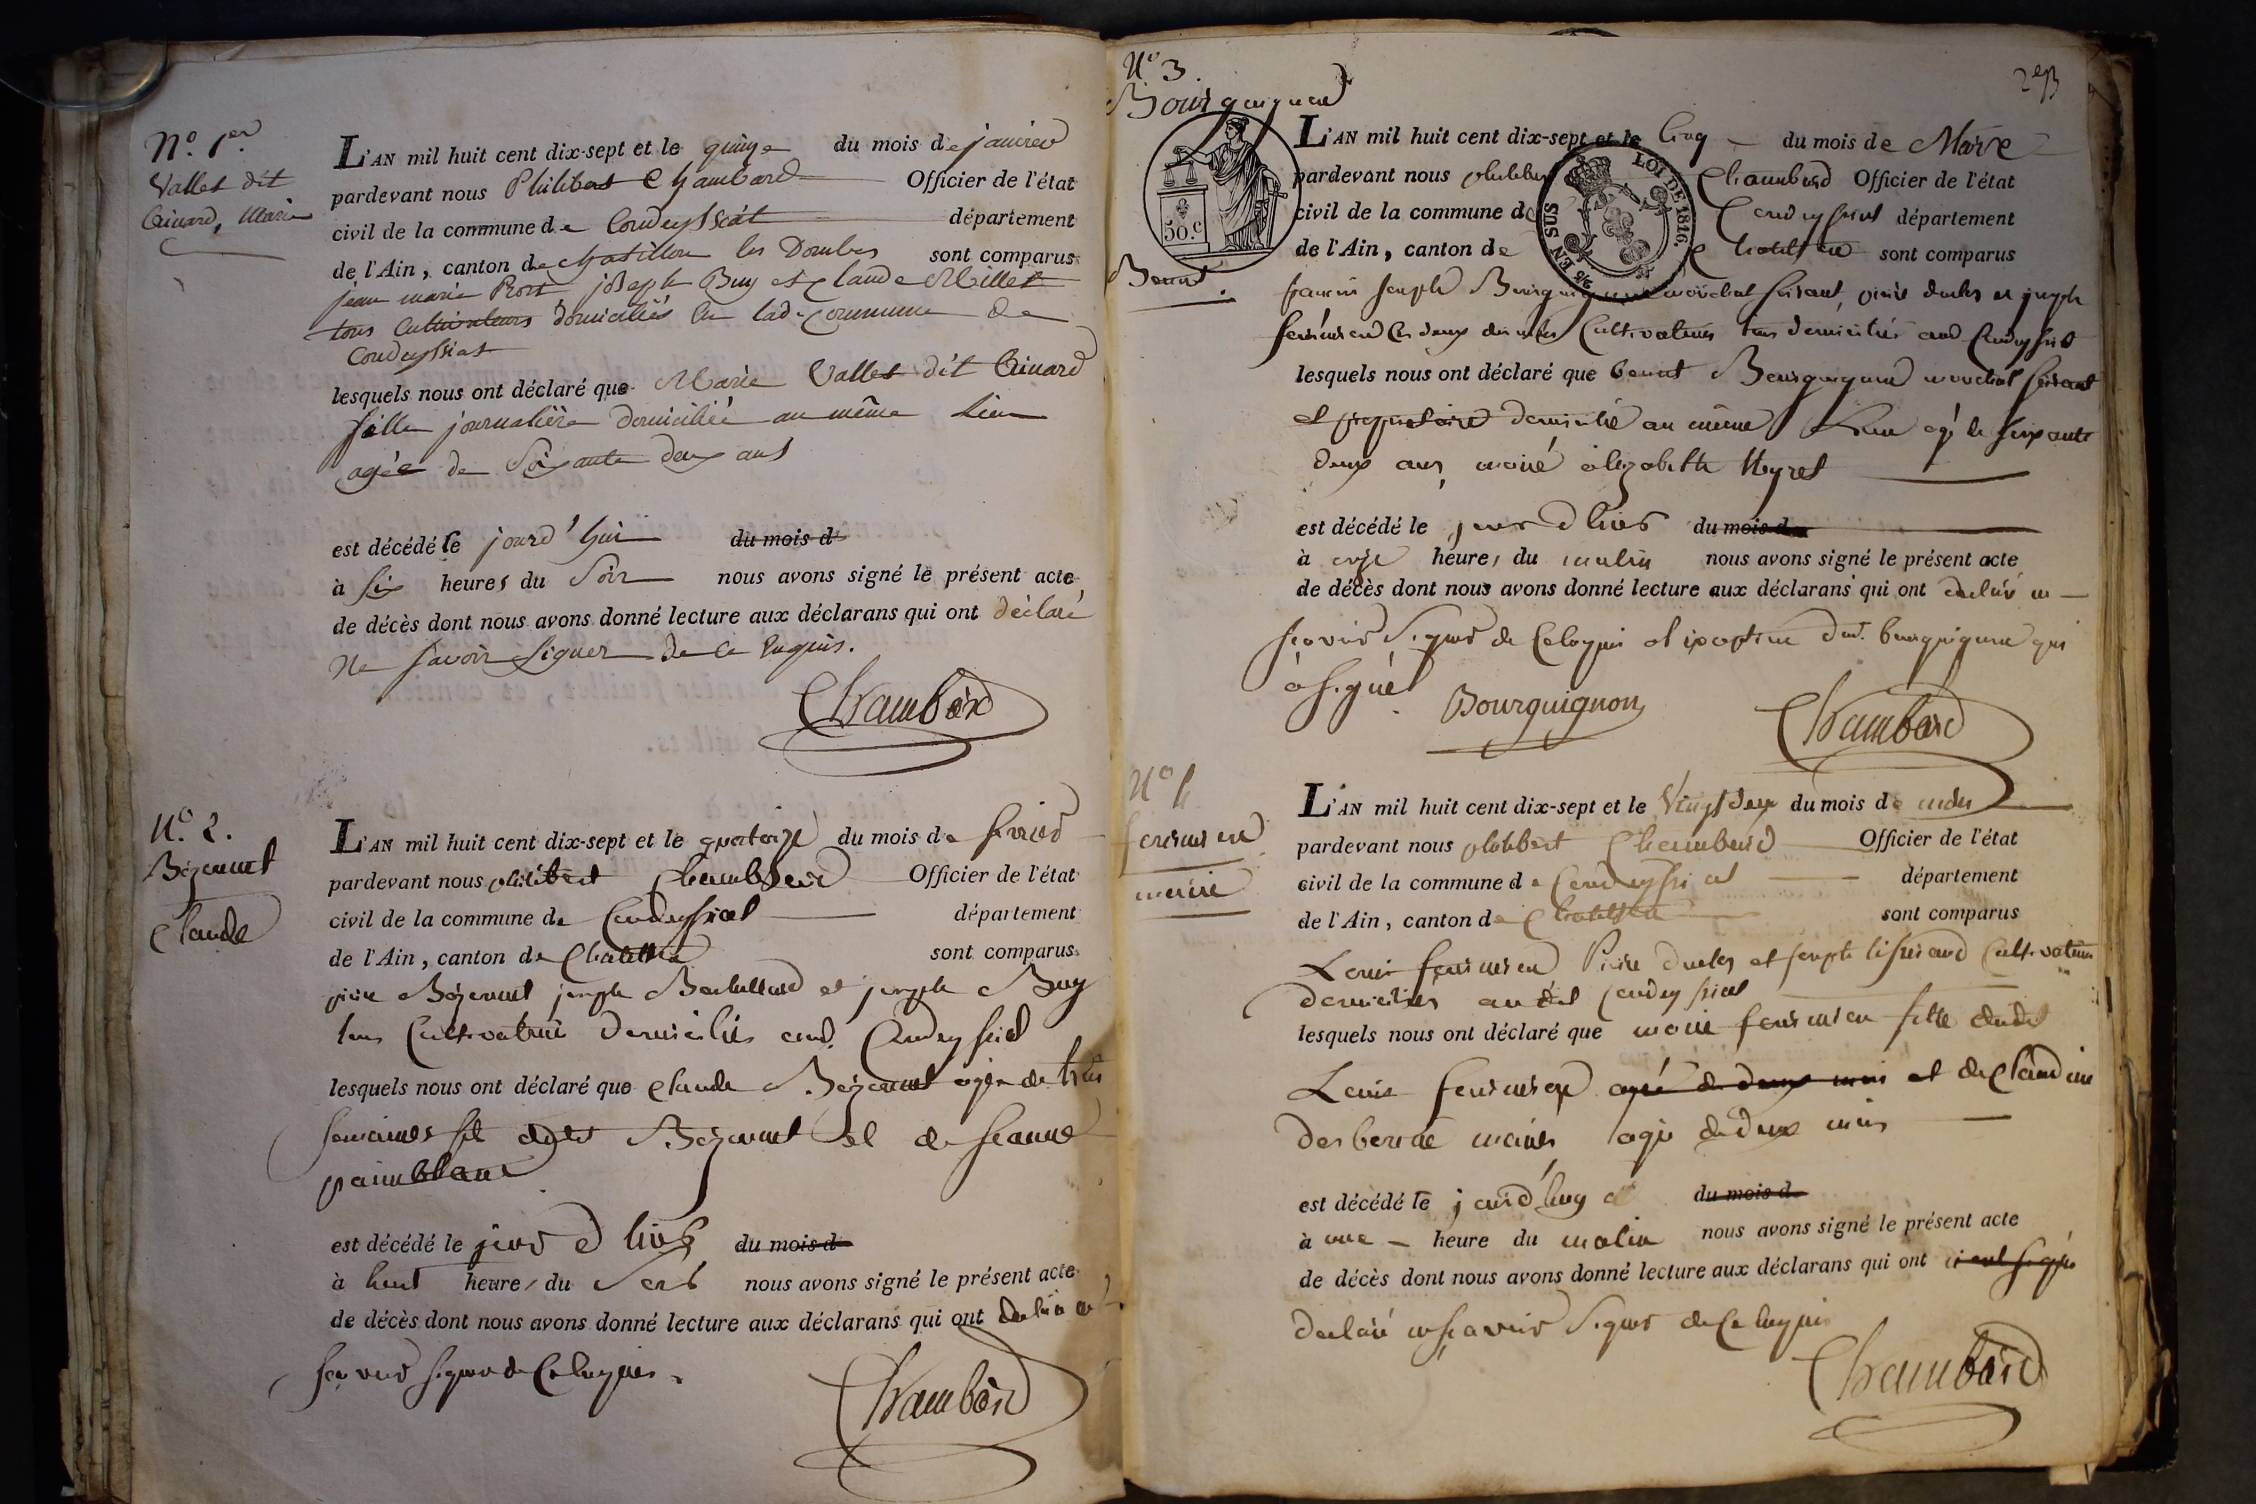 N.º 1.er
Vallet dit
Guinard, Marie
L'AN mil huit cent dix-sept et le quinze du mois de janvier
pardevant nous Philibert Chambard Officier de l'état
civil de la commune de Condeyssiat département
de l'Ain, canton de chatillon les Dombes sont comparus
jean marie joseph Buy et Claude Millet
tous Cultivateurs domiciliés en lad. commune de
Condeyssiat
lesquels nous ont déclaré que Marie Vallet dit Guinard
fille journalière domiciliée au même lieu
agée de Soixante deux ans
est décédé le jourd'hui du mois d
à six heures du Soir nous avons signé le présent acte
de décès dont nous avons donné lecture aux déclarans qui ont déclaré
Ne Savoir Signer de ce Enquis.
Chambard
N.º 2.
Bézannet
Claude
L'AN mil huit cent dix-sept et le quatorze du mois de fevrier
pardevant nous philibert Chambard Officier de l'état
civil de la commune de Condeyssiat département
de l'Ain, canton de Chatillon sont comparus
pierre Bézannet joseph et joseph Buy
tous Cultivateurs domiciliés aud. Condeyssiat
lesquels nous ont déclaré que Claude Bézannet agée de trois
semaines fils dudit Bézannet et de jeanne
painblanc
est décédé le jour d hier du mois d
à huit heures du Soir nous avons signé le présent acte
de décès dont nous avons donné lecture aux déclarans qui ont declaré ne
scavoir signer de Ce enquis.
Chambard
N.º 3.
293
Bourguignon
Benoit
50.c
LOI DE 1816.
EN SUS
L'AN mil huit cent dix-sept et le Cinq du mois de Mars
pardevant nous philibert Chambard Officier de l'état
civil de la commune de Condeyssiat département
de l'Ain, canton de Chatillon sont comparus
francois joseph Bourguignon marechal ferrant, et joseph
les deux derniers Cultivateurs tous domiciliés aud Condeyssiat
lesquels nous ont déclaré que benoit Bourguignon marechal ferrant
et propriétaire domicilié au même Lieu agé de soixante
deux ans, marié à Elizabeth
est décédé le jour d hier du mois d
à onze heures du matin nous avons signé le présent acte
de décès dont nous avons donné lecture aux déclarans qui ont declaré ne
scavoir signer de Ce enquis a exception dud. bourguignon qui
a signé
Bourguignon
Chambard
N.º 4
marie
L'AN mil huit cent dix-sept et le Vingt deux du mois de mars
pardevant nous philibert Chambard Officier de l'état
civil de la commune de Condeyssiat département
de l'Ain, canton de Chatillon sont comparus
Louis et joseph Cultivateurs
domiciliés au dit Condeyssiat
lesquels nous ont déclaré que marie fille dudit
Louis agée de deux mois et de Claudine
mariés agée de deux mois
est décédé le jourd'huy du mois d
à une heure du matin nous avons signé le présent acte
de décès dont nous avons donné lecture aux déclarans qui ont
declaré ne scavoir signer de Ce enquis
Chambard